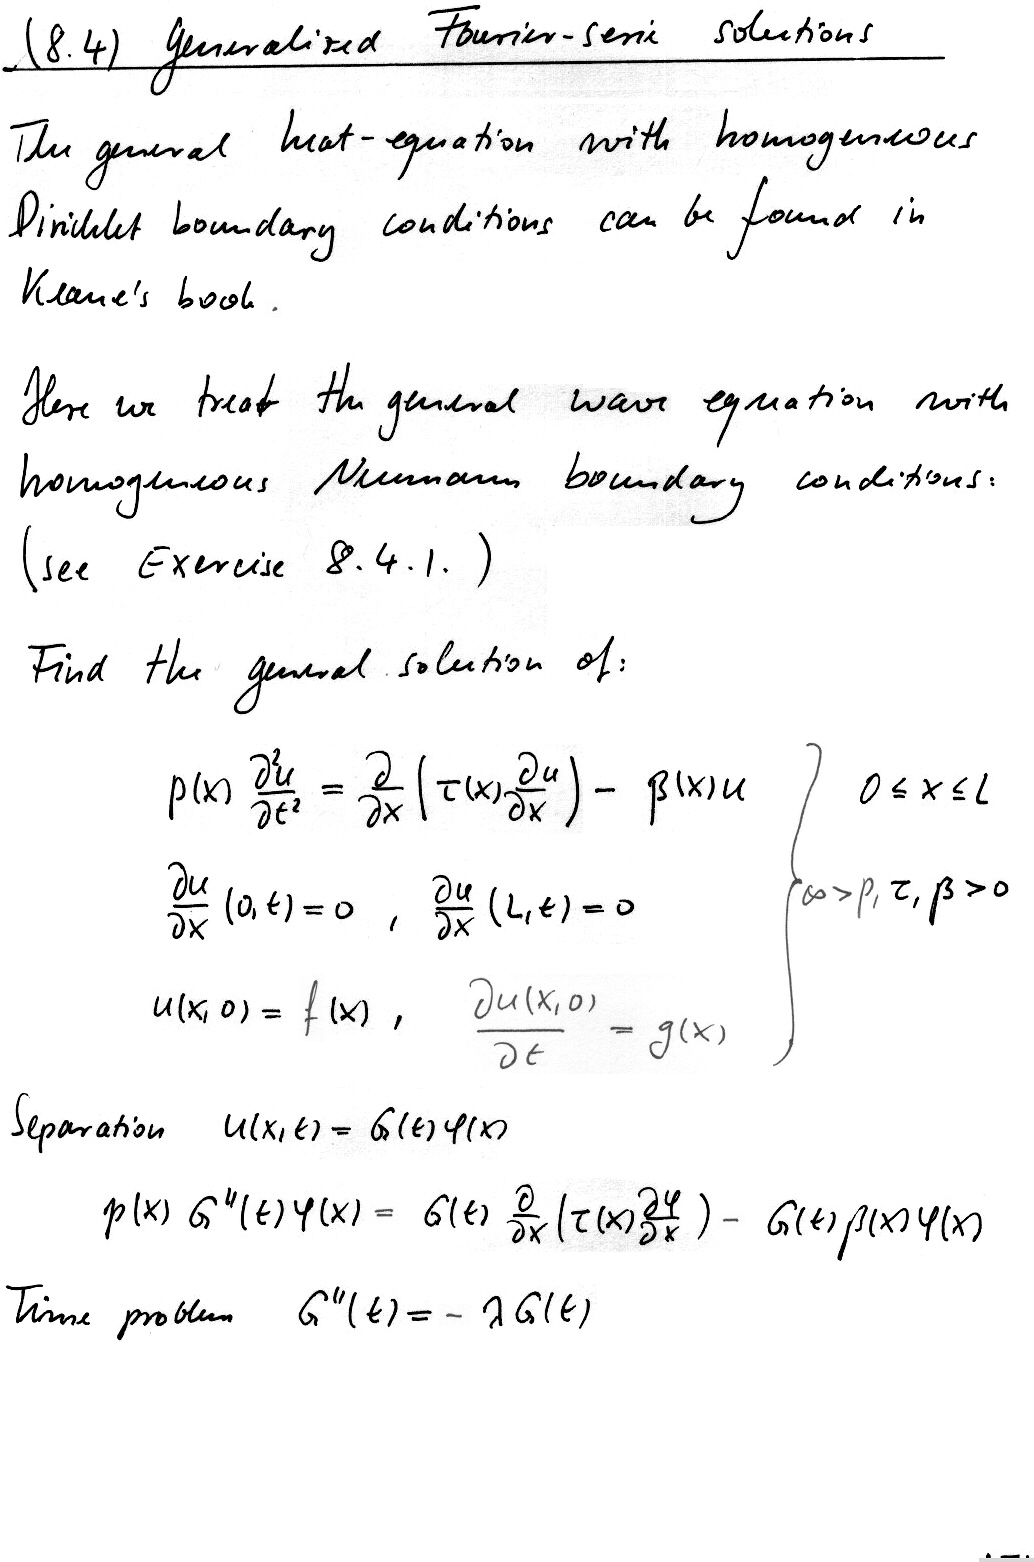 (8.4) Generalized Fourier-serie solutions
The general heat-equation with homogeneous
Dirichlet boundary conditions can be found in
Keane's book.
Here we treat the general wave equation with
homogeneous Neumann boundary conditions:
(see Exercise 8.4.1.)
Find the general solution of:
ρ(x) ∂²u/∂t² = ∂/∂x (τ(x) ∂u/∂x) - β(x)u } 0 ≤ x ≤ L
∂u/∂x (0,t) = 0 , ∂u/∂x (L,t) = 0 ∞ > ρ, τ, β > 0
u(x,0) = f(x) , ∂u(x,0)/∂t = g(x)
Separation u(x,t) = G(t) φ(x)
ρ(x) G''(t) φ(x) = G(t) ∂/∂x (τ(x) ∂φ/∂x) - G(t) β(x) φ(x)
Time problem G''(t) = - λ G(t)